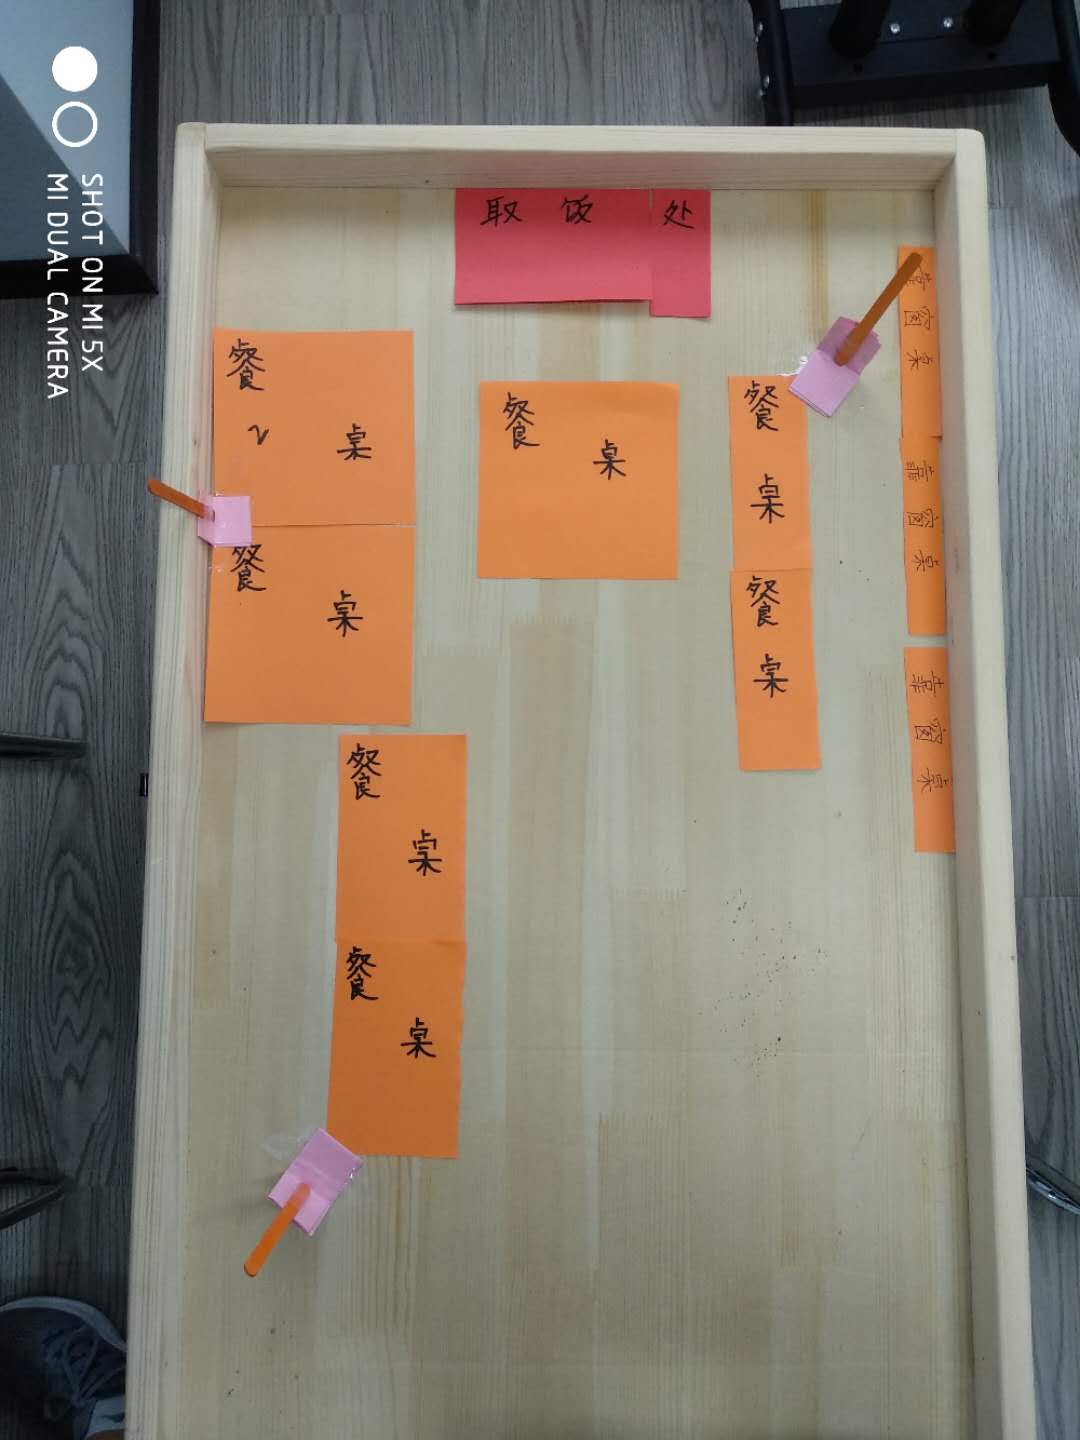 SHOT ON MI 5X
MI DUAL CAMERA
取饭处
餐桌
餐桌
餐桌
餐桌
餐桌
餐桌
餐桌
靠窗桌
靠窗桌
靠窗桌